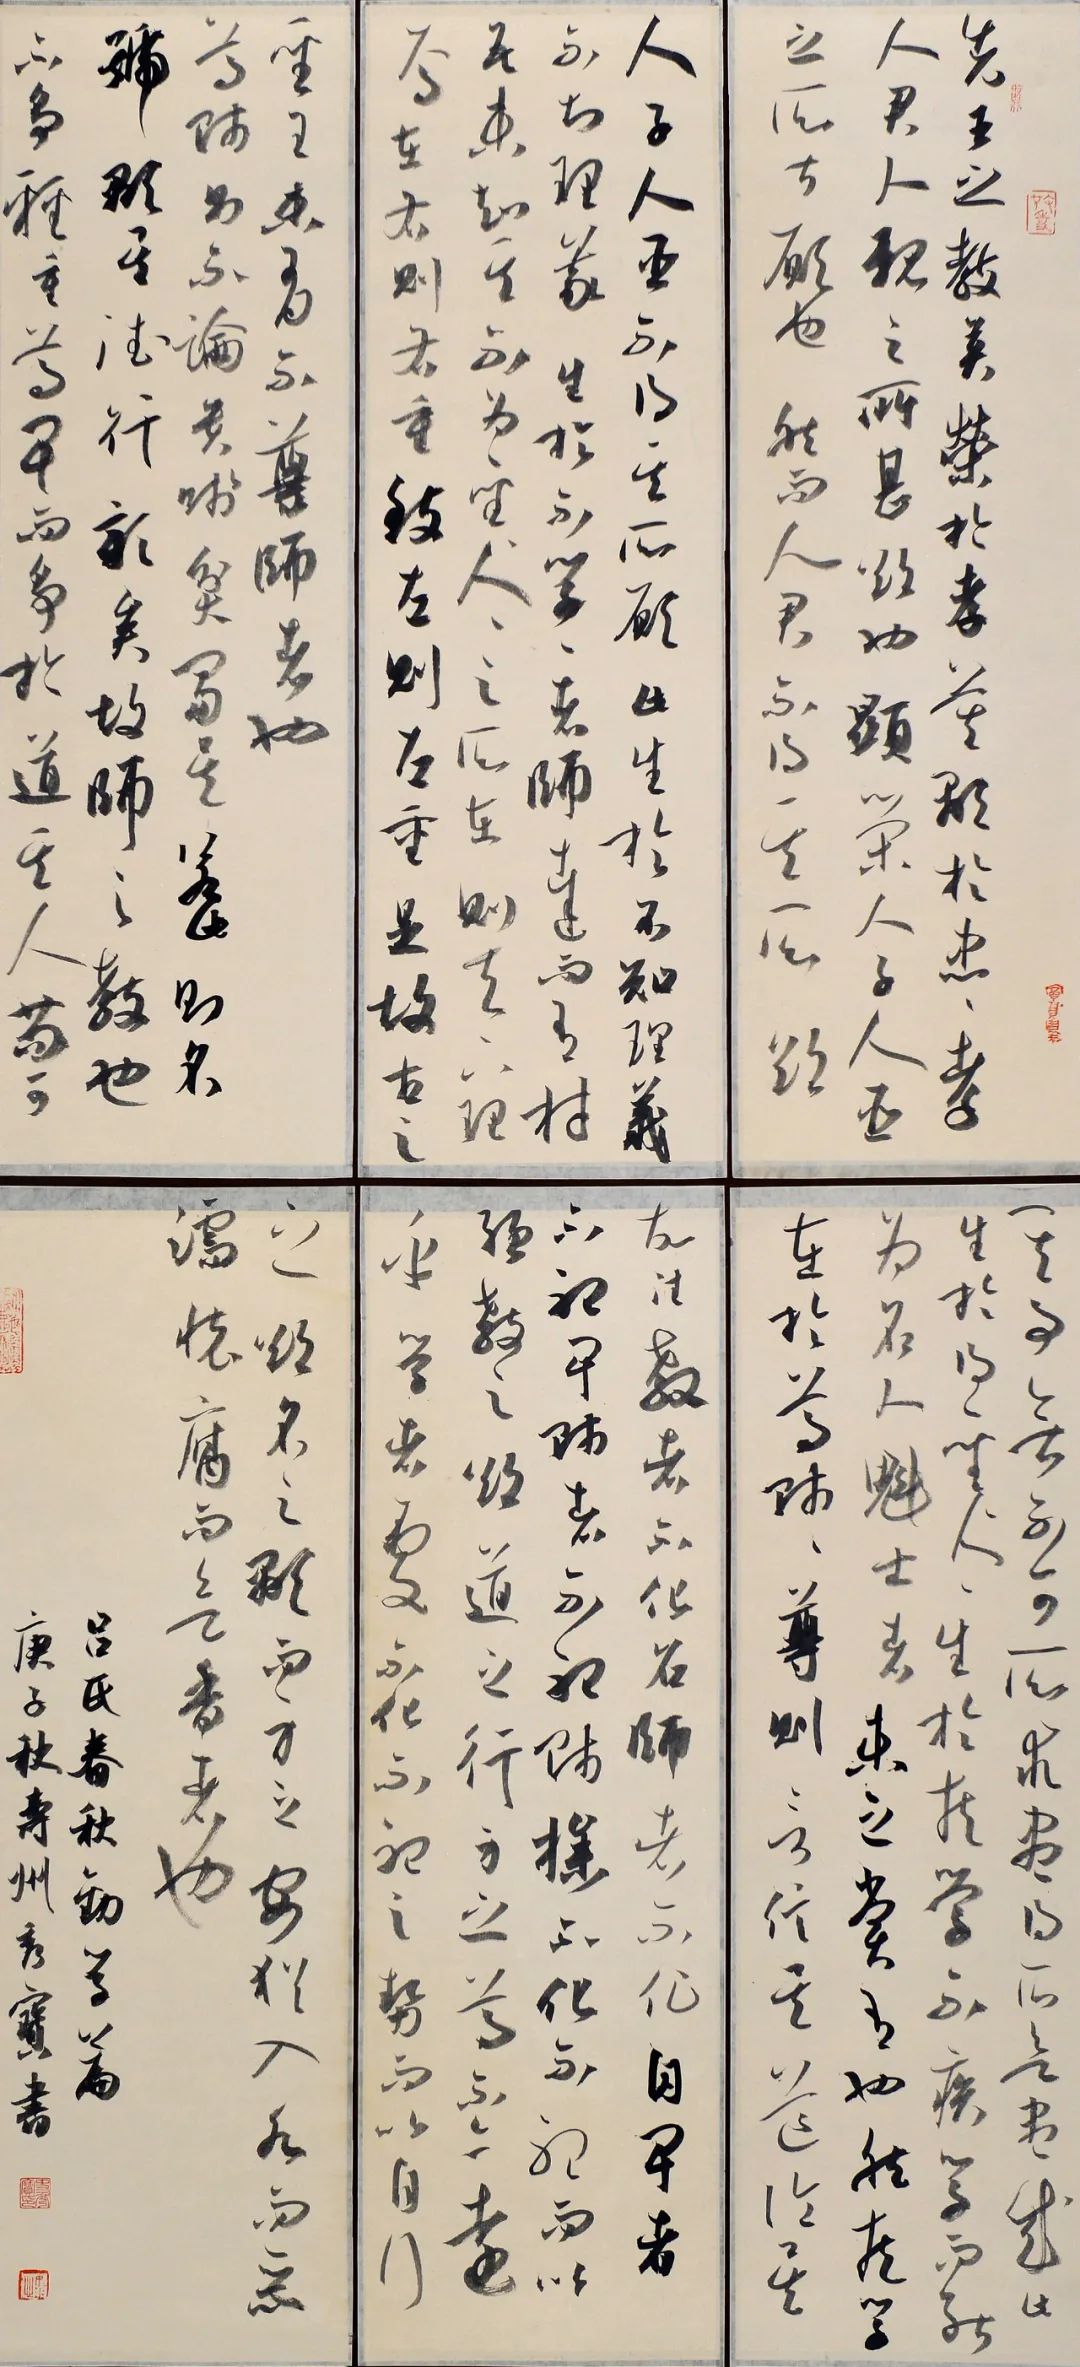 先王之教莫榮於孝莫顯於忠、孝
人君人親之所甚欲也顯榮人子人臣
之所甚願也然而人君不得其所欲
人子人臣不得其所願此生於不知理義
不知理義生於不學、者師達而有材
吾未知其不為聖人、之所在則天下理
焉在右則右重左則左重是故古之
聖王未有不尊師者也
尊師則不論貴賤貧富矣若此則名
號顯矣德行彰矣故師之教也
不爭輕重尊卑而爭於道其人苟可
其事無不可所求盡得所欲盡成此
生於得聖人、生於疾學不疾學而能
為名人魁士者未之嘗有也然疾學
在於尊師、尊則言信矣道論矣
故往教者不化召師者不化自卑者
不聽卑師者不聽師操不化不聽而以
強教之欲道之行身之尊不亦遠
乎學者處不化不聽之勢而以自行
之欲名之顯而身之安猶入水而惡
濡懷腐而欲香者也
呂氏春秋勸學篇
庚子秋壽州寶書